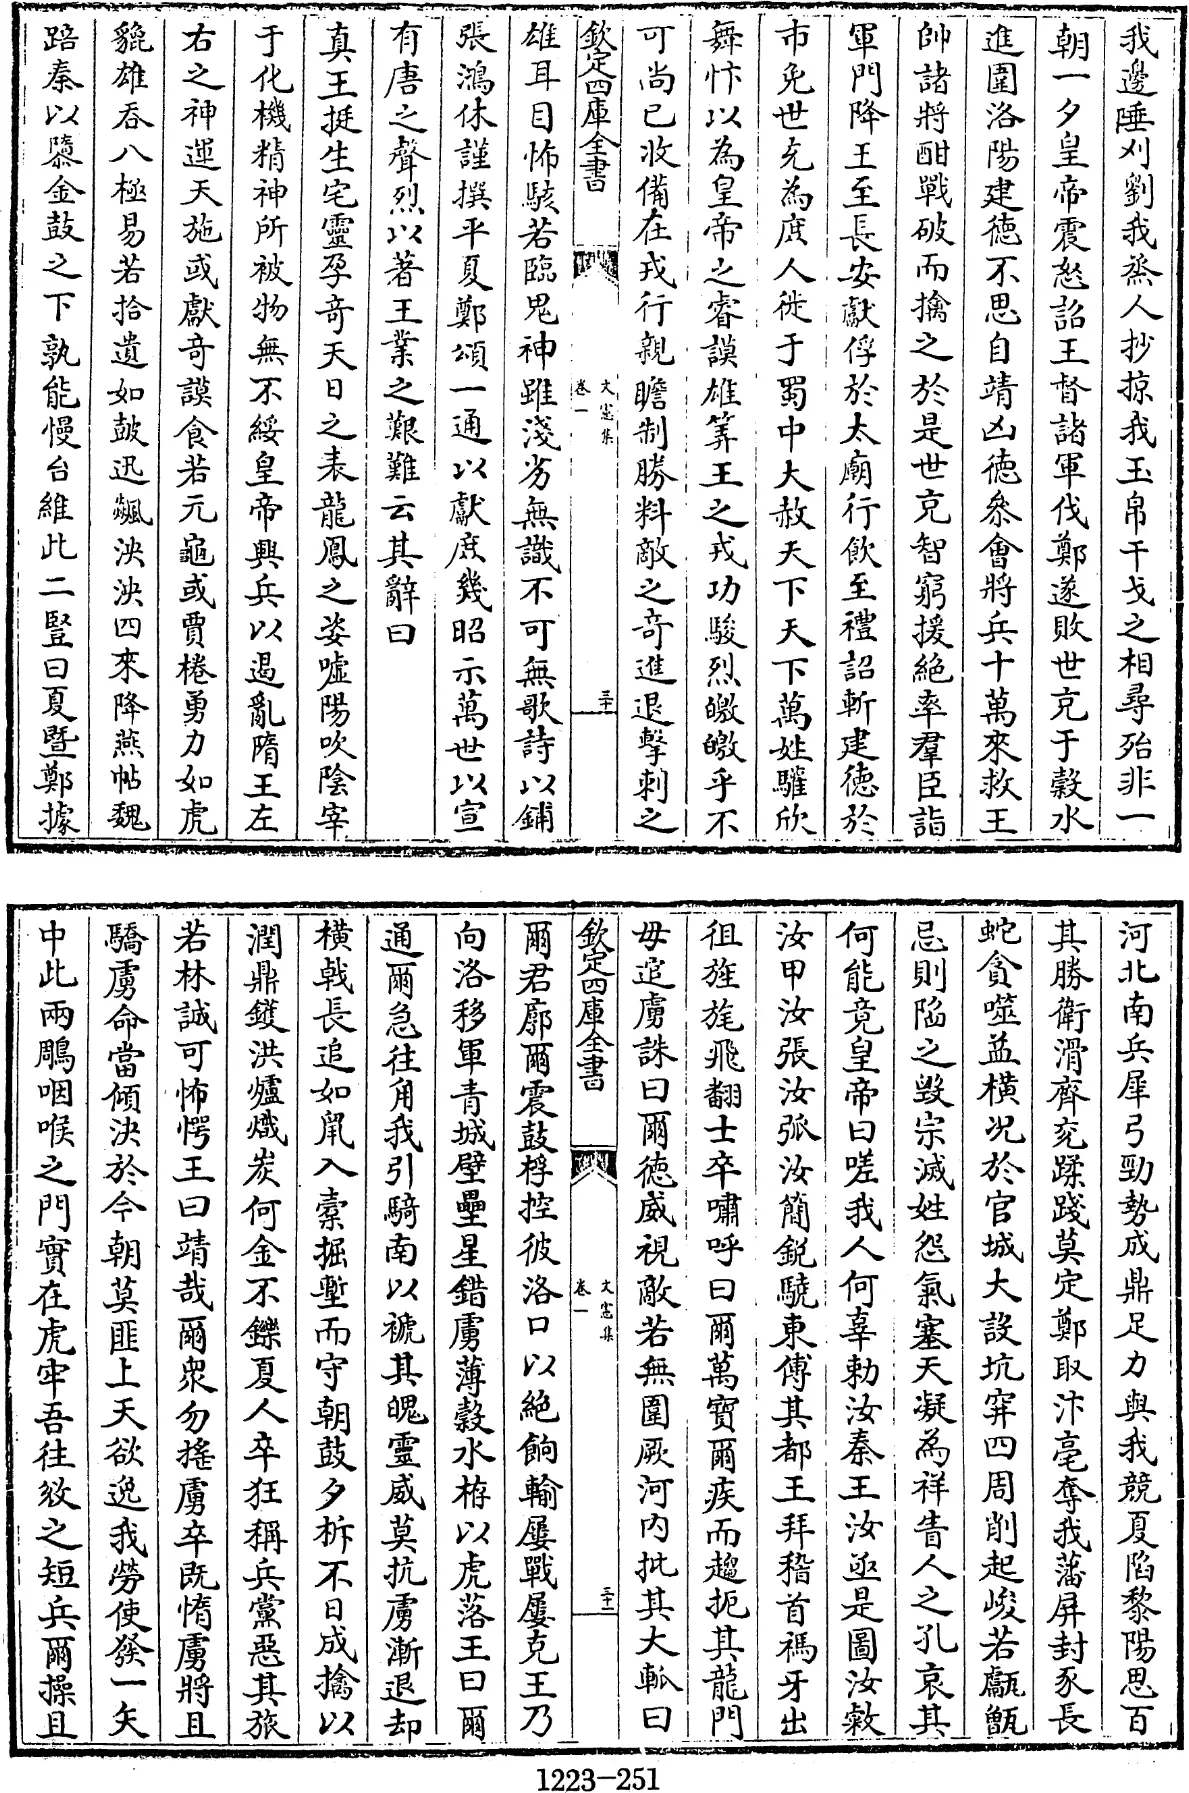 我邊陲刈劉我烝人抄掠我玉帛干戈之相尋殆非一
朝一夕皇帝震怒詔王督諸軍伐鄭遂敗世充于榖水
進圍洛陽建徳不思自靖凶徳叅㑹將兵十萬來救王
帥諸將酣戰破而擒之於是世充智窮援絶率羣臣詣
軍門降王至長安獻俘於太廟行飲至禮詔斬建徳於
市免世充為庶人徙于蜀中大赦天下天下萬姓驩欣
舞忭以為皇帝之睿謨雄筭王之戎功駿烈皦皦乎不
可尚已收備在戎行親瞻制勝料敵之奇進退擊刺之
欽定四庫全書
文憲集
卷一
三十
雄耳目怖駭若臨鬼神雖淺劣無識不可無歌詩以鋪
張鴻休謹撰平夏鄭頌一通以獻庶幾昭示萬世以宣
有唐之聲烈以著王業之艱難云其辭曰
真王挺生宅靈孕奇天日之表龍鳳之姿噓陽吹陰宰
于化機精神所被物無不綏皇帝興兵以遏亂隋王左
右之神運天施或獻奇謨食若元龜或賈棬勇力如虎
貔雄吞八極易若拾遺如鼓迅飈泱泱四來降燕帖魏
踣秦以隳金鼓之下孰能慢台維此二豎曰夏暨鄭據
河北南兵犀弓勁勢成鼎足力與我競夏陷黎陽思百
其勝衛滑齊兖蹂踐莫定鄭取汴亳奪我藩屏封豕長
蛇貪噬益橫况於官城大設坑穽四周削起峻若甗甑
忌則陷之毀宗滅姓怨氣塞天凝為祥眚人之孔哀其
何能竟皇帝曰嗟我人何辜勅汝秦王汝亟是圖汝敹
汝甲汝張汝弧汝簡鋭驍東傅其都王拜稽首禡牙出
徂旌旄飛翻士卒嘯呼曰爾萬寶爾疾而趨扼其龍門
毋逭虜誅曰爾德威視敵若無圍厥河内批其大軱曰
欽定四庫全書
文憲集
卷一
三十一
爾君廓爾震鼓桴控彼洛口以絶餉輸屢戰屢克王乃
向洛移軍青城壁壘星錯虜薄榖水栫以虎落王曰爾
通爾急往角我引騎南以褫其魄靈威莫抗虜漸退却
橫戟長追如䑕入槖掘塹而守朝鼓夕柝不日成擒以
潤鼎鑊洪爐熾炭何金不鑠夏人卒狂稱兵黨惡其旅
若林誠可怖愕王曰靖哉爾衆勿搖虜卒既惰虜將且
驕虜命當傾決於今朝莫匪上天欲逸我勞使發一矢
中此兩鵰咽喉之門實在虎牢吾往效之短兵爾操且
1223-251